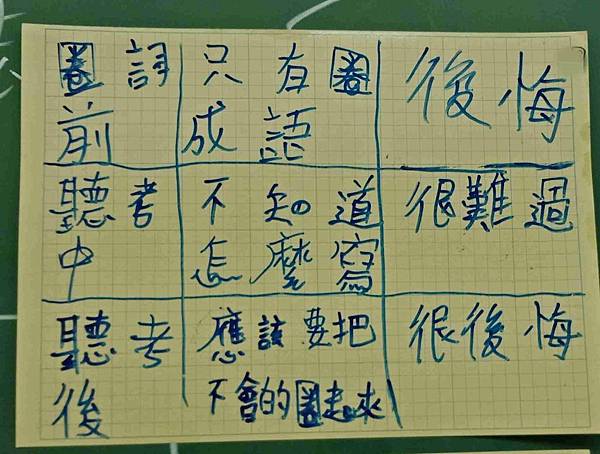 圈詞前
只有圈成語
後悔
聽考中
不知道怎麼寫
很難過
聽考後
應該要把不會的圈起來
很後悔